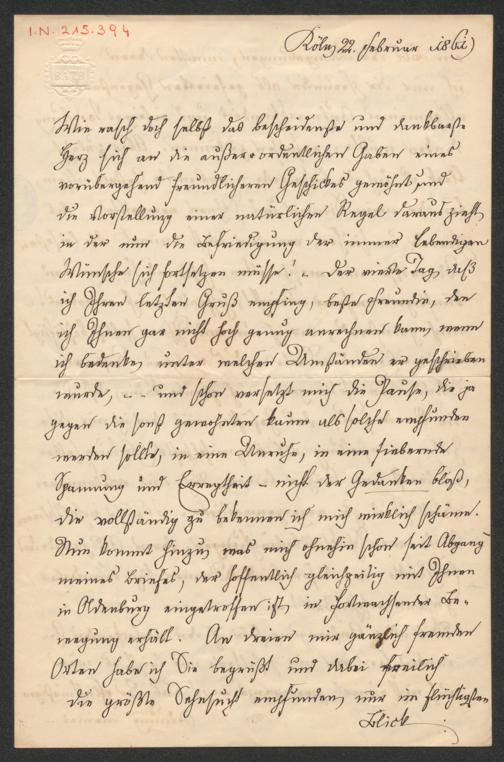 I.N. 215.394
BATH
Köln, 22. Februar 1861
Wie rasch doch selbst das bescheidenste und dankbarste
Herz sich an die außerordentlichen Gaben eines
vorübergehend freundlicheren Geschickes gewöhnt, und
die Vorstellung einer natürlichen Regel daraus zieht,
in der nun die Befriedigung der immer lebendigen
Wünsche sich fortsetzen müsse! – Der vierte Tag, daß
ich Ihren letzten Gruß empfing, beste Freundin, den
ich Ihnen gar nicht hoch genug anrechnen kann, wenn
ich bedenke, unter welchen Umständen er geschrieben
wurde, – – und schon versetzt mich die Pause, die ja
gegen die sonst gewohnten kaum als solche empfunden
werden sollte, in eine Unruhe, in eine fiebernde
Spannung und Erregtheit – nicht der Gedanken bloß,
die vollständig zu bekennen ich mich wirklich schäme.
Nun kommt hinzu, was mich ohnehin schon seit Abgang
meines Briefes, der hoffentlich gleichzeitig mit Ihnen
in Oldenburg eingetroffen ist, in fortwachsender Be-
wegung erhält. An dreien mir gänzlich fremden
Orten habe ich Sie begrüßt und dabei freilich
die größte Sehnsucht empfunden, nur im flüchtigsten
Blick